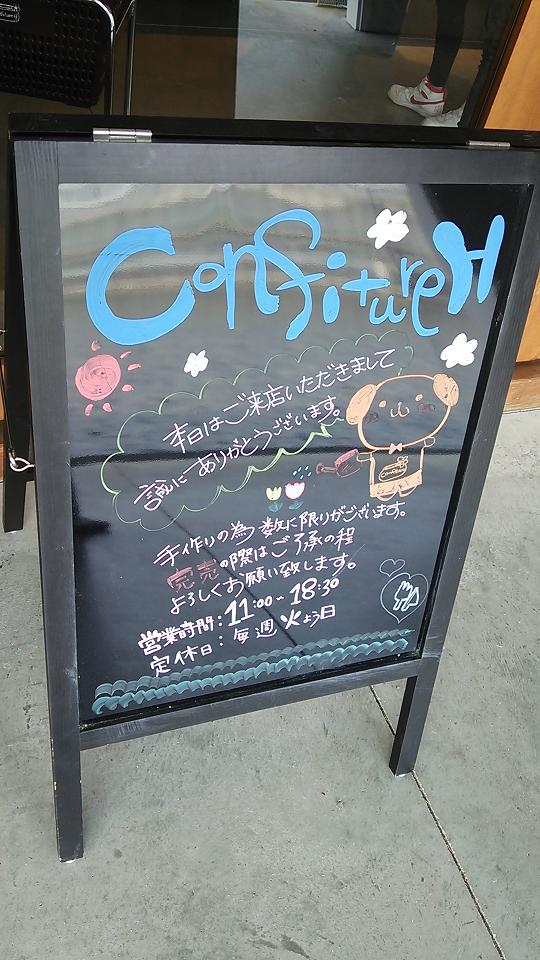 Confiture H
本日はご来店いただきまして
誠にありがとうございます。
手作りの為 数に限りがございます。
完売の際はご了承の程
よろしくお願い致します。
営業時間：11:00~18:30
定休日：毎週火よう日